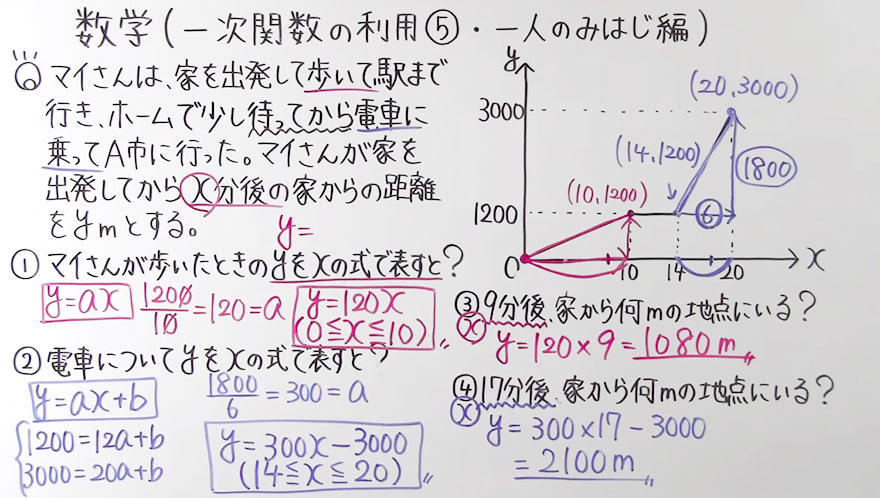 数学(一次関数の利用⑤・一人のみはじ編)
マイさんは、家を出発して歩いて駅まで
行き、ホームで少し待ってから電車に
乗ってA市に行った。マイさんが家を
出発してからx分後の家からの距離
をymとする。
y=
① マイさんが歩いたときのyをxの式で表すと?
y=ax
1200/10=120=a
y=120x
(0≦x≦10)〃
② 電車についてyをxの式で表すと?
y=ax+b
1800/6=300=a
1200=12a+b
3000=20a+b
y=300x-3000
(14≦x≦20)〃
y
(20,3000)
3000
(14,1200)
1800
(10,1200)
1200
6
O
10
14
20
x
③9分後、家から何mの地点にいる?
x
y=120×9=1080m〃
④17分後、家から何mの地点にいる?
x
y=300×17-3000
=2100m〃